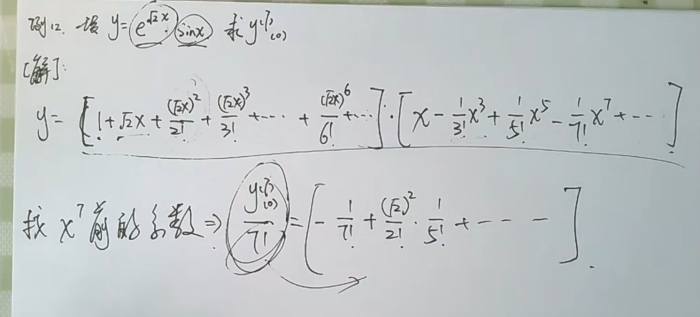 例12. 设 y=e^{√2x} sinx, 求 y^{(7)}(0)
[解]:
y = [1+√2x+(√2x)^2/2!+(√2x)^3/3!+⋯+(√2x)^6/6!+⋯]·[x-1/3!x^3+1/5!x^5-1/7!x^7+⋯]
找 x^7 前的系数⇒ y^{(7)}(0)/7! = [-1/7!+(√2)^2/2!·1/5!+⋯]